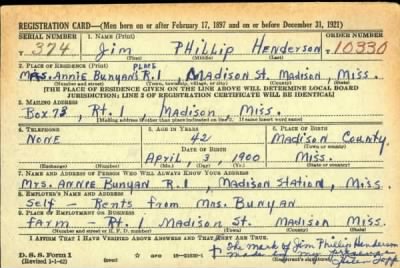 REGISTRATION CARD—(Men born on or after February 17, 1897 and on or before December 31, 1921)
SERIAL NUMBER 1. NAME (Print) ORDER NUMBER
T 374 Jim Phillip Henderson 10330
(First) (Middle) (Last)
2. PLACE OF RESIDENCE (Print) PLACE
Mrs. Annie Bunyan's R.1, Madison St. Madison, Miss.
(Number and street) (Town, township, village, or city) (County) (State)
[THE PLACE OF RESIDENCE GIVEN ON THE LINE ABOVE WILL DETERMINE LOCAL BOARD
JURISDICTION; LINE 2 OF REGISTRATION CERTIFICATE WILL BE IDENTICAL]
3. MAILING ADDRESS
Box 73, Rt. 1 Madison, Miss.
[Mailing address if other than place indicated on line 2. If same insert word same]
4. TELEPHONE 5. AGE IN YEARS 6. PLACE OF BIRTH
None 42 Madison County
DATE OF BIRTH (Town or county)
April, 3, 1900 Miss.
(Exchange) (Number) (Mo.) (Day) (Yr.) (State or country)
7. NAME AND ADDRESS OF PERSON WHO WILL ALWAYS KNOW YOUR ADDRESS
Mrs. Annie Bunyan R.1, Madison Station, Miss.
8. EMPLOYER'S NAME AND ADDRESS
Self - Rents from Mrs. Bunyan
9. PLACE OF EMPLOYMENT OR BUSINESS
Farm - Rt 1 Madison St. Madison Miss.
(Number and street or R. F. D. number) (Town) (County) (State)
I AFFIRM THAT I HAVE VERIFIED ABOVE ANSWERS AND THAT THEY ARE TRUE.
D. S. S. Form 1
(Revised 1-1-42) (over)
The mark of Jim Phillip Henderson
made by my
(Registrant's signature)